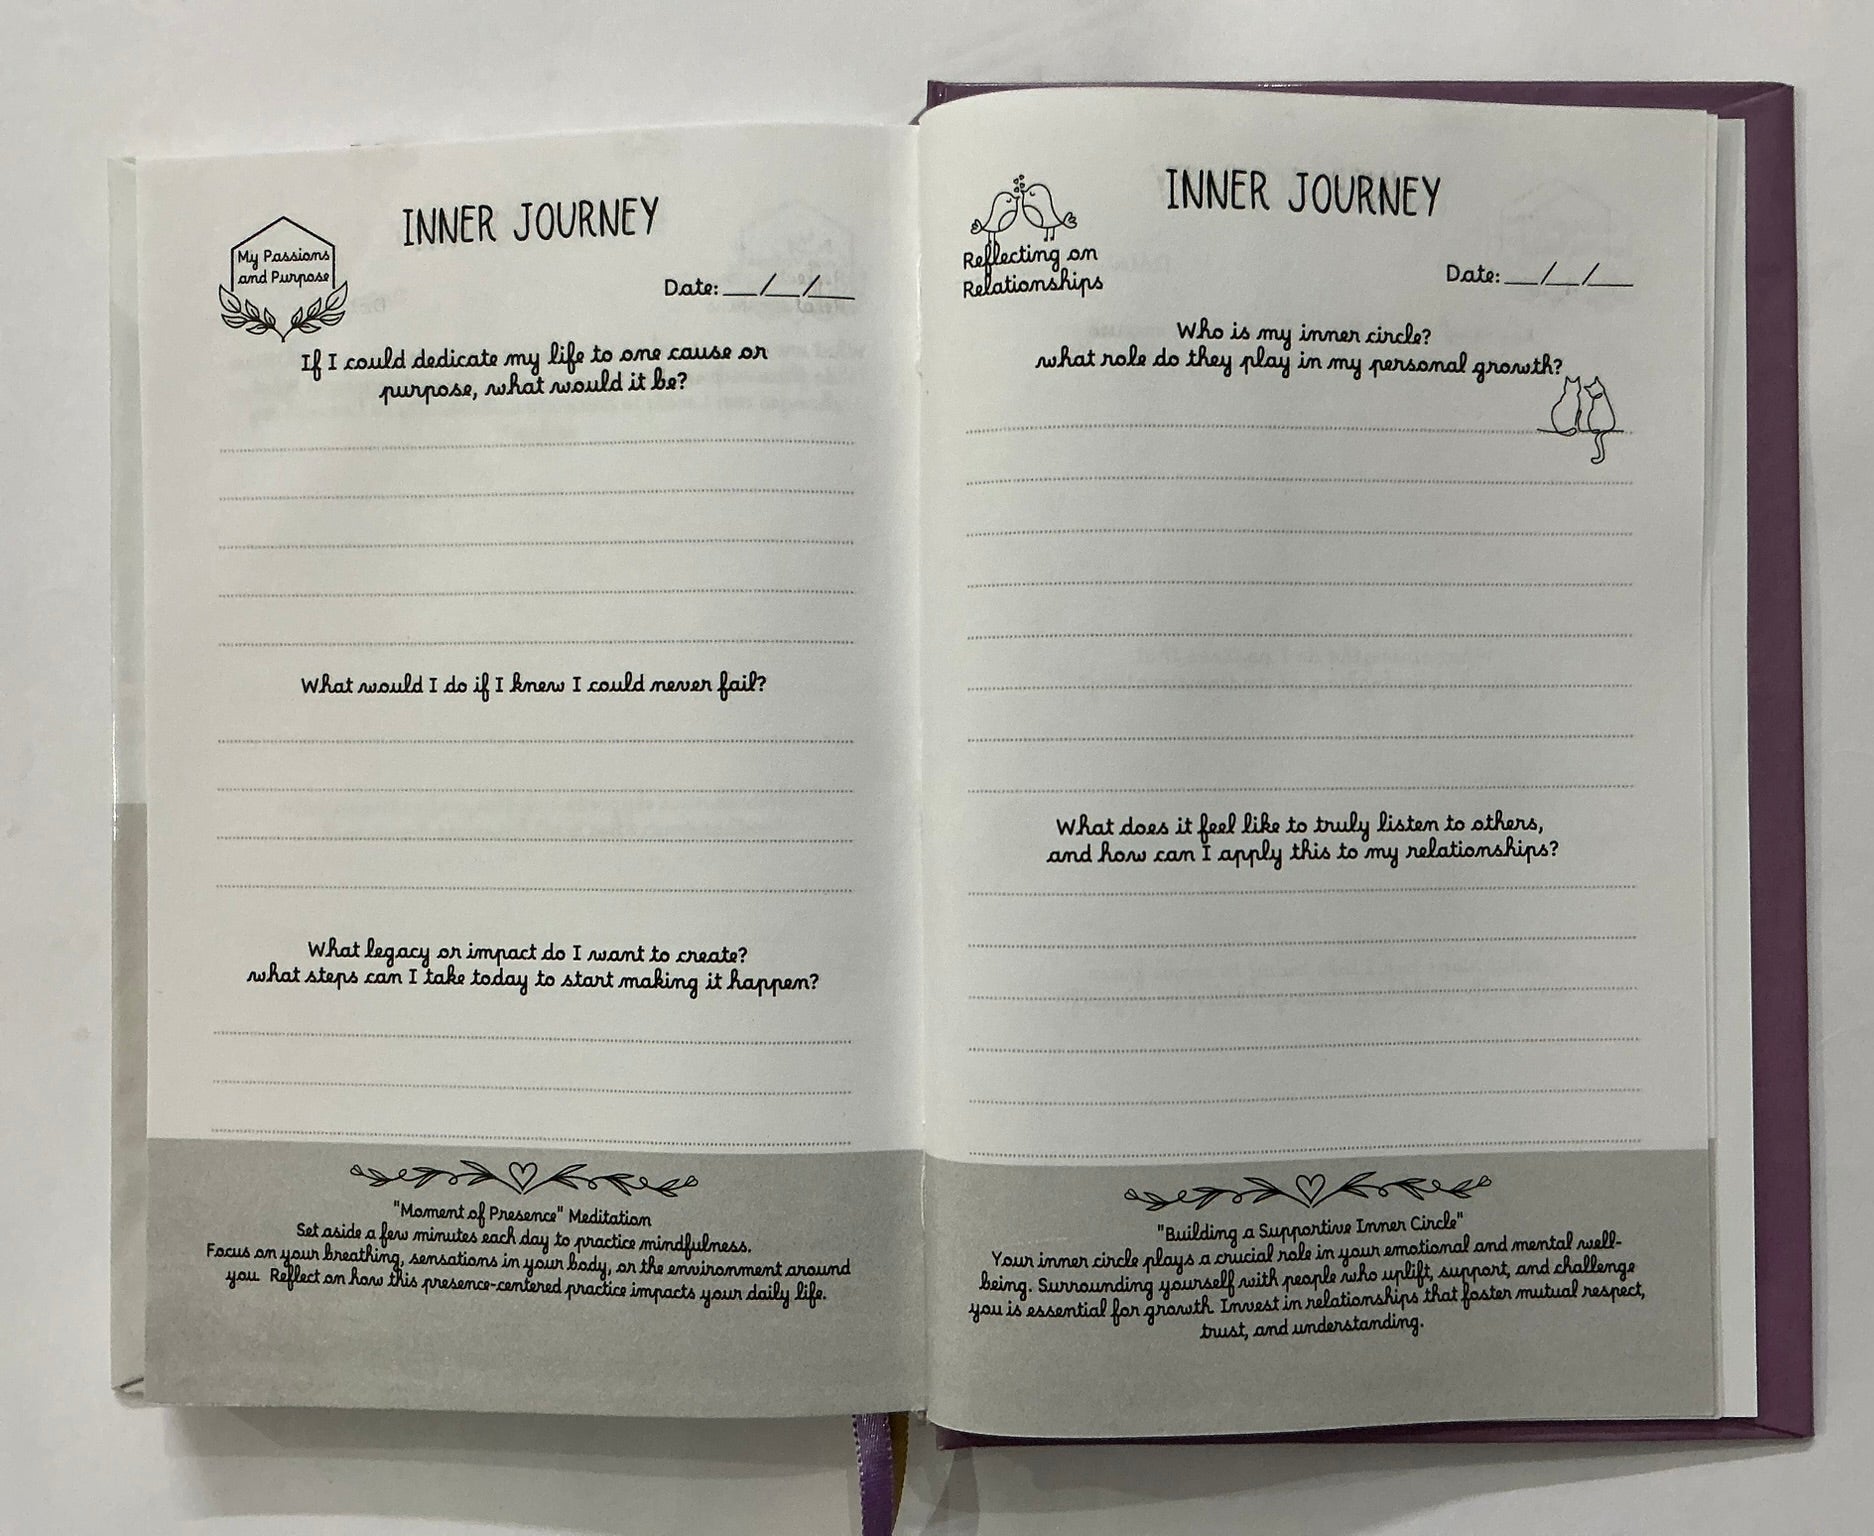 INNER JOURNEY
My Passions
and Purpose
Date: __/__/__
If I could dedicate my life to one cause or
purpose, what would it be?
What would I do if I knew I could never fail?
What legacy or impact do I want to create?
what steps can I take today to start making it happen?
"Moment of Presence" Meditation
Set aside a few minutes each day to practice mindfulness.
Focus on your breathing, sensations in your body, or the environment around
you. Reflect on how this presence-centered practice impacts your daily life.
INNER JOURNEY
Reflecting on
Relationships
Date: __/__/__
Who is my inner circle?
what role do they play in my personal growth?
What does it feel like to truly listen to others,
and how can I apply this to my relationships?
"Building a Supportive Inner Circle"
Your inner circle plays a crucial role in your emotional and mental well-
being. Surrounding yourself with people who uplift, support, and challenge
you is essential for growth. Invest in relationships that foster mutual respect,
trust, and understanding.